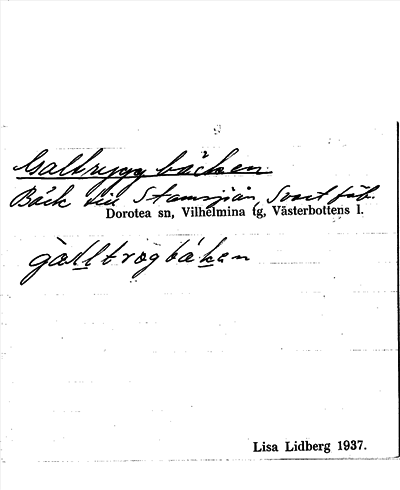 Galtryggbäcken
Bäck till Stamsjöån, Svartfåb.
Dorotea sn, Vilhelmina tg, Västerbottens l.
gàlltrogbäken
Lisa Lidberg 1937.